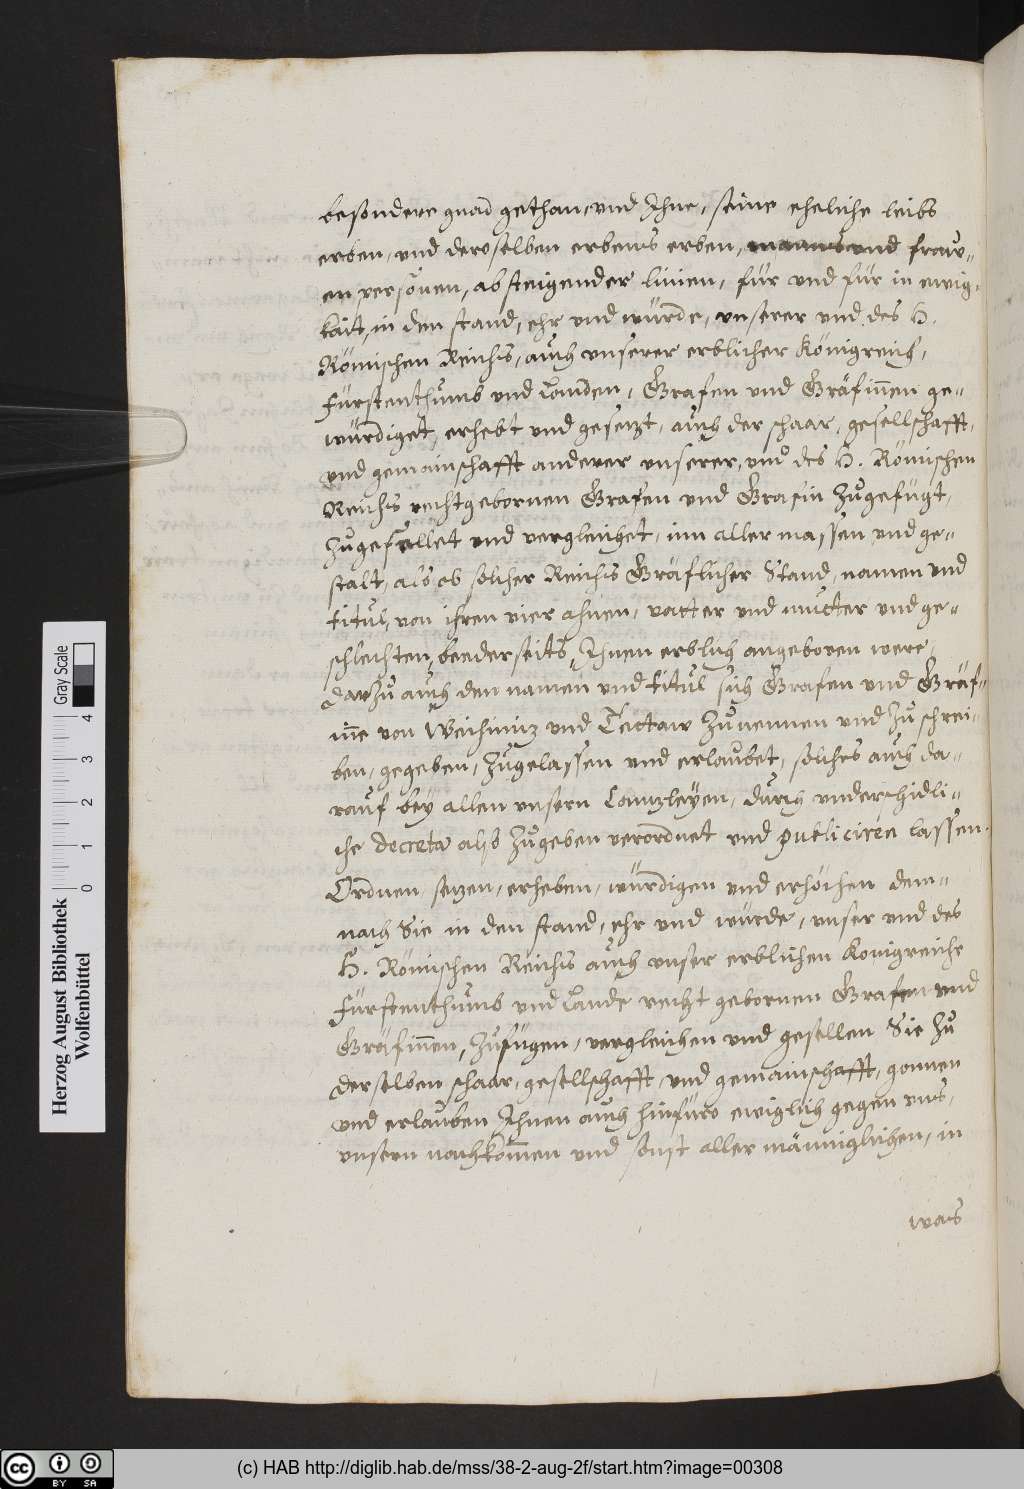 besondere gnad gethan, und Ihne, seine eheliche leibs
erben, und deroselben erbens erben, manns und fraw-
en persönen, absteigender linien, für und für in ewig-
kait, in den stand, ehr und würde, unserer und des H.
Römischen Reichs, auch unserer erblicher Königreich,
Fürstenthumb und Landen, Grafen und Gräfinnen ge-
würdiget, erhebt und gesetzt, auch der schaar, gesellschafft,
und gemainschafft anderer unserer, und des H. Römischen
Reichs rechtgebornen Grafen und Grafin zugefügt,
zugesellet und vergleichet, inn aller massen und ge-
stalt, als ob solcher Reichs Gräflicher Stand, namen und
titul, von ihren vier ahnen, vatter und mutter und ge-
schlechten, beederseits, Ihnen erblich angeboren were,
darzu auch den namen und titul sich Grafen und Gräf-
in̄e von Wchinitz und Tettaw zu nennen und zu schrei-
ben, gegeben, zugelassen und erlaubet, solches auch da-
rauf bey allen unsern Cantzleyen, durch underschidli-
che decreta also zugeben verordnet und publiciren lassen.
Ordnen, setzen, erheben, würdigen und erhöchen dem-
nach Sie in den stand, ehr und würde, unser und des
H. Römischen Reichs auch unser erblichen Konigreiche
Fürstenthumb und Lande recht gebornen Grafen und
Gräfinnen, zufügen, vergleichen und gesellen Sie zu
derselben schaar, gesellschafft, und gemainschafft, gonnen
und erlauben Ihnen auch hinfüro ewiglich gegen uns,
unsern nachkom̄en und sonst aller männiglichen, in
was
Herzog August Bibliothek
Wolfenbüttel
0 1 2 3 4
Gray Scale
cc BY SA
(c) HAB http://diglib.hab.de/mss/38-2-aug-2f/start.htm?image=00308